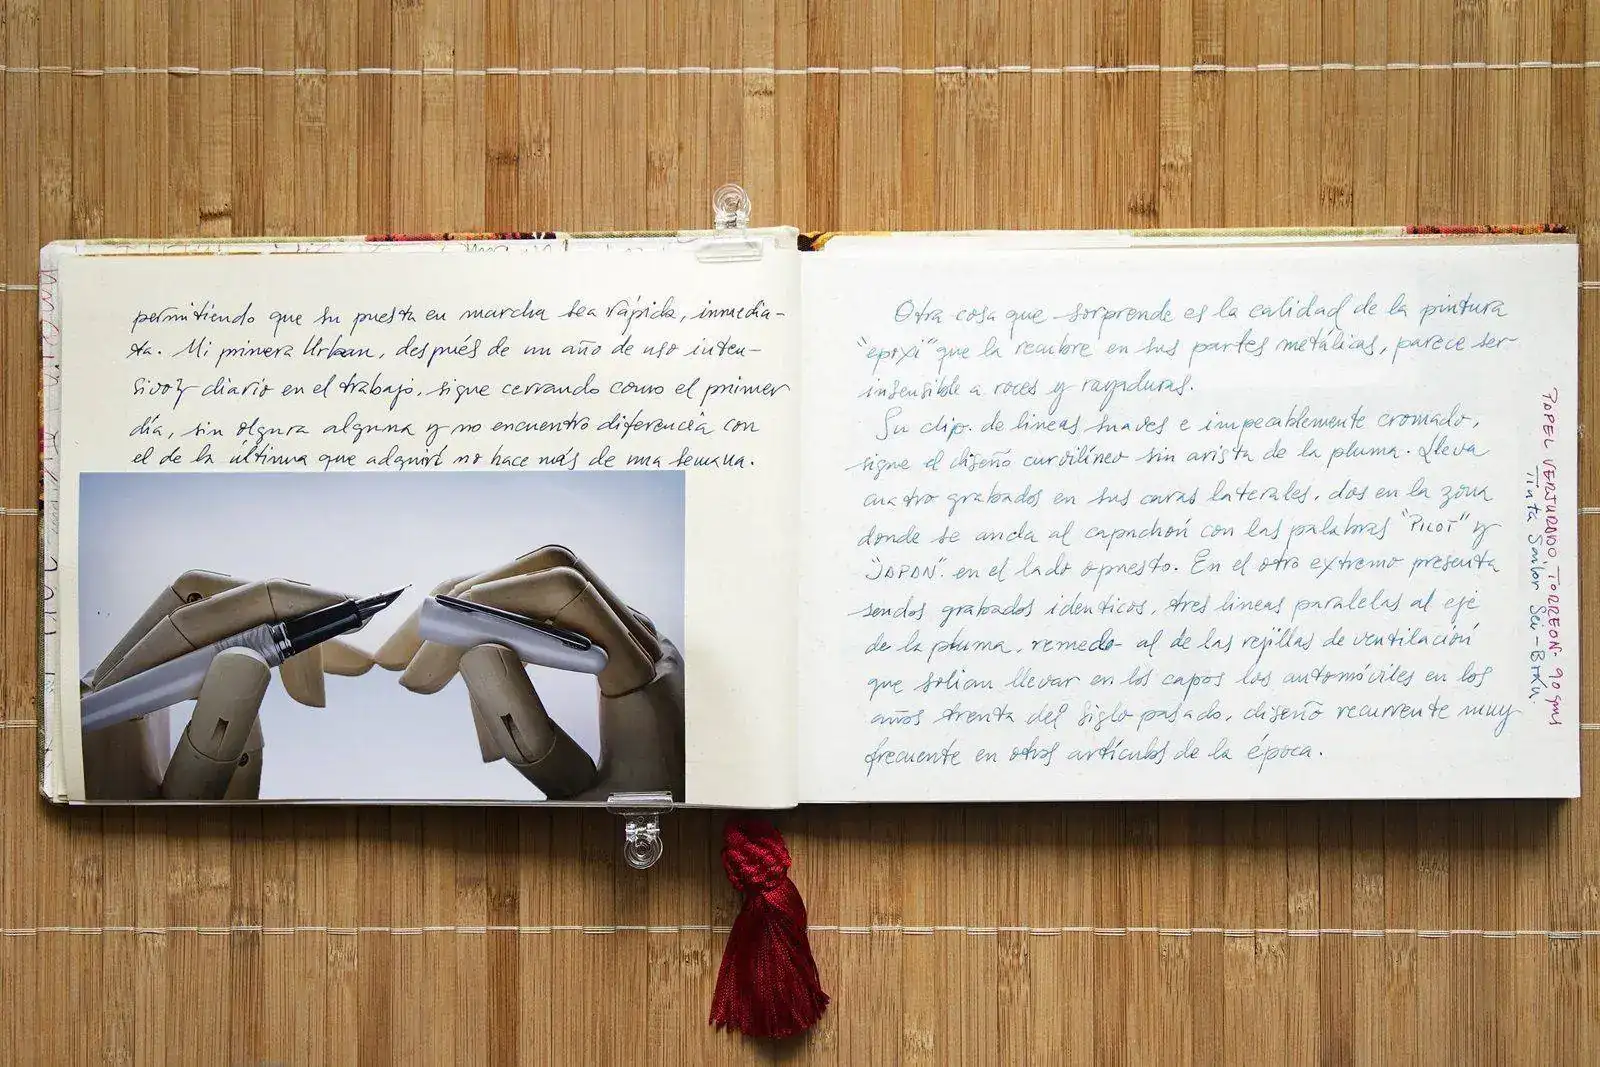 permitiendo que su puesta en marcha sea rápida, inmedia-
ta. Mi primera Urban, después de un año de uso inten-
sivo y diario en el trabajo, sigue cerrando como el primer
día, sin olgura alguna y no encuentro diferencia con
el de la última que adquirí no hace más de una semana.
Otra cosa que sorprende es la calidad de la pintura
"epoxi" que la recubre en sus partes metálicas, parece ser
insensible a roces y rayaduras.
Su clip. de lineas suaves e impecablemente cromado,
sigue el diseño curvilíneo sin arista de la pluma. Lleva
cuatro grabados en sus caras laterales, dos en la zona
donde se ancla al capuchón con las palabras "PILOT" y
"JAPAN". en el lado opuesto. En el otro extremo presenta
sendos grabados identicos, tres lineas paralelas al eje
de la pluma, remedo al de las rejillas de ventilación
que solian llevar en los capos los automóviles en los
años trenta del siglo pasado, diseño recurrente muy
frecuente en otros artículos de la época.
PAPEL VERJURADO, TORREON. 90 gms
Tinta Sailor Sei-Boku.